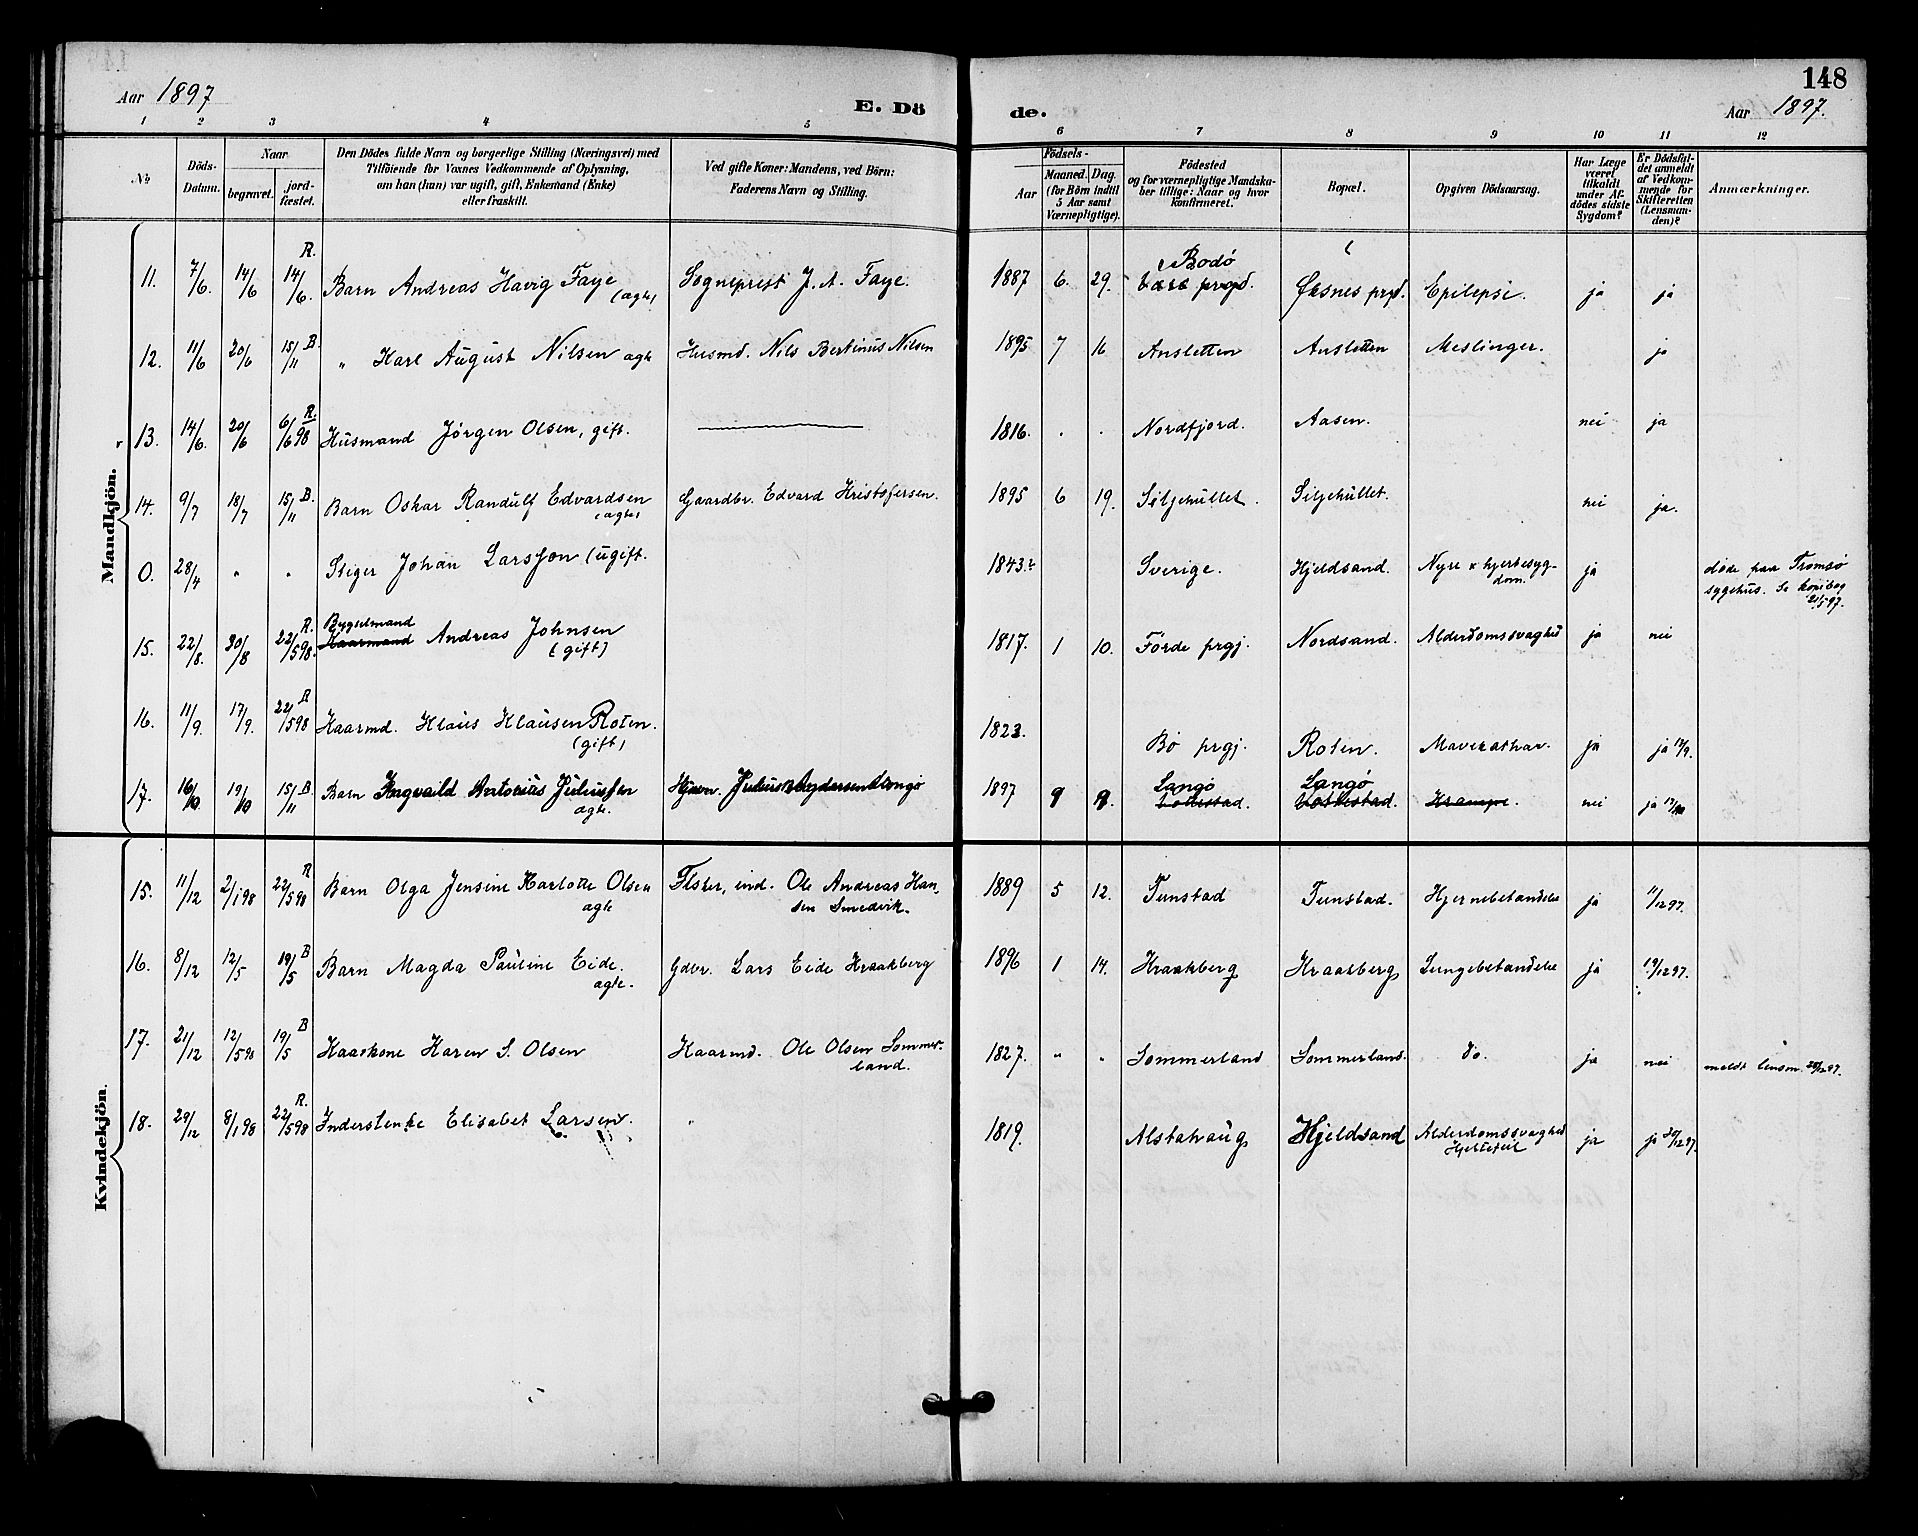 148
Aar 1897
E. Dö
de.
Aar 1897.
1 2 3 4 5 6 7 8 9 10 11 12
No
Döds-
Datum.
Naar
begravet.
jord-
fæstet.
Den Dödes fulde Navn og borgerlige Stilling (Næringsvei) med
Tilföiende for Voxnes Vedkommende af Oplysning,
om han (hun) var ugift, gift, Enkemand (Enke)
eller fraskilt.
Ved gifte Koner: Mandens, ved Börn:
Faderens Navn og Stilling.
Födsels-
Aar
Maaned.
Dag.
(for Börn indtil
5 Aar samt
Værnepligtige).
Födested
og for værnepligtige Mandska-
ber tillige: Naar og hvor
konfirmeret.
Bopæl.
Opgiven Dödsaarsag.
Har Læge
været
tilkaldt
under Af-
dödes sidste
Sygdom?
Er Dödsfal-
det anmeldt
af Vedkom-
mende for
Skifteretten
(Lensman-
den)?
Anmærkninger.
Mandkjön.
R.
Bodö
11. 7/6. 14/6 14/6. Barn Andreas Havig Faye Sogneprest J. A. Faye. 1887 6. 29. prgd. Øksnes prgd. Epilepsi. ja ja
(ægte)
12. 11/6 20/6 15/11 B. " Karl August Nilsen ægte Husmd. Nils Bertinus Nilsen 1895 7 16 Ansletten Ansletten Meslinger. ja
R.
13. 14/6. 20/6 6/6 98 Husmand Jörgen Olsen, gift. 1816. . . Nordfjord. Aasen. nei ja
14. 9/7 18/7 15/11 B. Barn Oskar Randulf Edvardsen Gaardbr. Edvard Kristofersen. 1895 6 19. Siljehullet. Siljehullet. nei ja.
(ægte)
0. 28/4 " " Stiger Johan Larsson (ugift. 1843. Sverige. Hjeldsand. Nyre & hjertesyg- ja döde paa Tromsö
dom. sygehus. Se kopibog
21/5 97.
R. Bygselmand
15. 22/8. 30/8 22/5 98. Kaarmand Andreas Johnsen 1817. 1 10. Förde prgj. Nordsand. Alderdomssvaghed ja nei
(gift)
B
16. 11/9. 17/9. 22/5 98 Kaarmd. Klaus Klausen Roten. 1823. Bö prgj. Roten. Mavekathar. ja ja 13/9.
(gift)
Langö Langö
17. 16/10 19/10 15/11 B. Barn Ingvald Antonius Juliussen 1897 9 9. Krampe. nei ja
ægte.
Kvindekjön.
R
15. 11/12 2/1 98 22/5 98 Barn Olga Jensine Karlotte Olsen Fisker, ind. Ole Andreas Han- 1889 5 12. Tunstad Tunstad. Hjernebetændelse ja 11/12 97.
ægte sen Smedvik.
B
16. 8/12 12/5 19/5 Barn Magda Pauline Eide. Gdbr. Lars Eide Kraakberg 1896 1 14. Kraakberg Kraakberg Lungebetændelse ja 19/12 97.
ægte.
B
17. 21/12 12/5 98 19/5 Kaarkone Karen S. Olsen Kaarmd. Ole Olsen Sommer- 1827. " " Sommerland Sommerland. do. ja nei meldt lensm.
land.
R.
18. 29/12 8/1 98 22/5 98 Inderstenke Elisabet Larsen. " 1819. Alstahaug Hjeldsand Alderdomssvaghed ja ja 30/12 97.
Hjertefeil